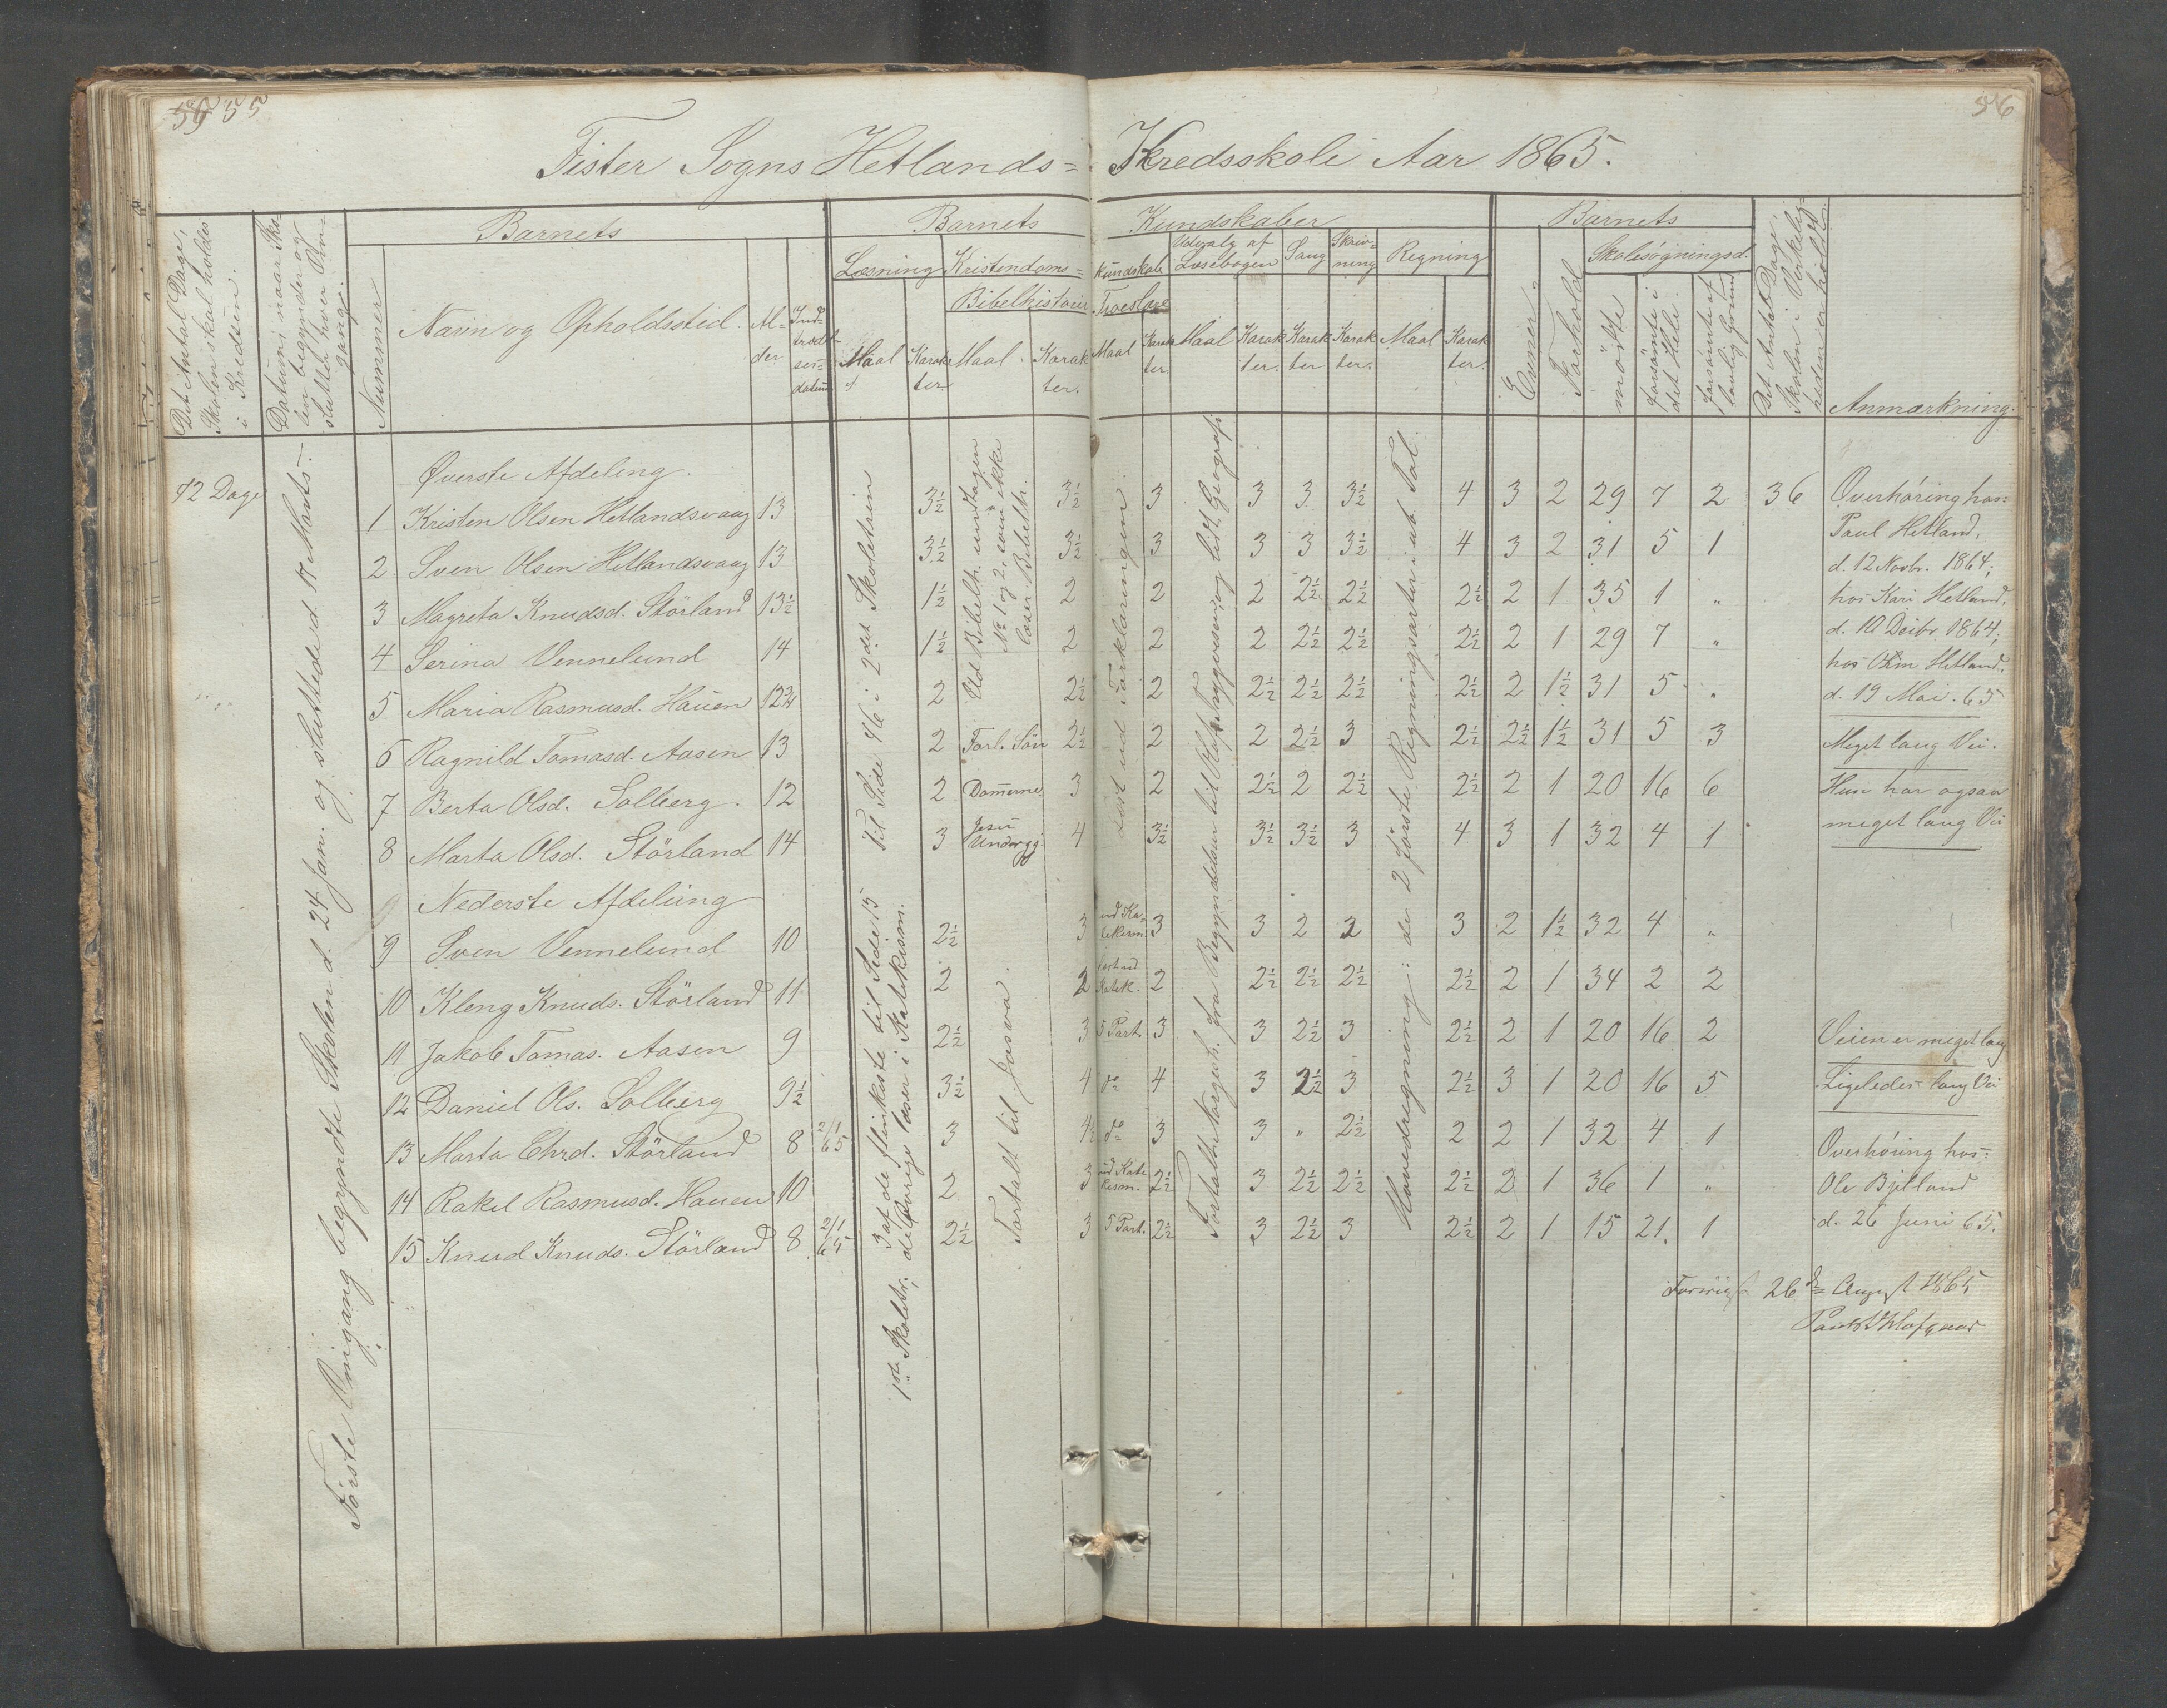 55
56
Fister Sogns Hetlands= Kredsskole Aar 1865.
Det Antal Dage,
Skolen skal holdes
i Kredsen.
Datum, naar Sko-
len begynder og
sluttes hver Om-
gang.
Nummer
Barnets
Navn og Opholdssted.
Al-
der
Ind-
trædel-
ses-
datum
Barnets Kundskaber
Læsning
Maal
Karak
ter.
Kristendoms= kundskab
Bibelhistorie
Maal.
Karak
ter.
Troeslære
Maal
Karak
ter.
Udvalg af
Læsebogen
Maal
Karak
ter.
Sang
Karak
ter
Skriv-
ning
Karak
ter.
Regning
Maal
Karak
ter.
Barnets
Evner
Forhold
Skolesøgningsd.
mødte
forsømte i
det Hele.
forsømte af
lovlig Grund
Det Antal Dage,
Skolen i Virkelig-
heden er holdt
Anmærkning.
72 Dage
Første Omgang begyndte Skolen d. 24 Jan. og sluttede d. 17 Marts.
Øverste Afdeling.
1 Kristen Olsen Hetlandsvaag 13 3½ 3½ 3 3 3 3½ 4 3 2 29 7 2 36
2 Sven Olsen Hetlandsvaag 13 3½ 3½ 3 3 3 3½ 4 3 2 31 5 1
3 Magreta Knudsd. Störland 13½ 1½ 2 2 2 2½ 2½ 2½ 2 1 35 1 "
4 Serina Vennelund 14 1½ 2 2 2 2½ 2½ 2½ 2 1 29 7 "
5 Maria Rasmusd. Hauen 12¾ 2 2½ 2 2½ 2½ 2½ 2½ 2 1½ 31 5 "
6 Ragnild Tomasd. Aasen 13 2 2½ 2 2 2½ 3 2½ 2½ 1½ 31 5 3
7 Berta Olsd. Solberg. 12 2 Dom̄erne 3 2 2½ 2 2½ 2½ 2 1 20 16 6
8 Marta Olsd. Störland 14 3 Jesu Undergj. 4 3½ 3½ 3½ 3 4 3 1 32 4 1
Nederste Afdeling
9 Sven Vennelund 10 2½ 3 ud Ka- tekism. 3 3 2 2 3 2 1½ 32 4 "
10 Kleng Knuds. Störland 11 2 2 Katek. 2 2½ 2½ 2½ 2½ 2 1 34 2 2
11 Jakob Tomas. Aasen 9 2½ 3 5 Part. 3 3 2½ 3 2½ 2 1 20 16 2
12 Daniel Ols. Solberg 9½ 3½ 4 do 4 3 2½ 3 2½ 3 1 20 16 5
13 Marta Chrd. Störland 8 2/1 65 3 4½ do 3 3 " 2½ 2 2 1 32 4 1
14 Rakel Rasmusd. Hauen 10 2 3 ud Kate kism. 2½ 3 2½ 2½ 2½ 2 1 36 1 "
15 Knud Knuds. Störland 8 2/1 65 2½ 3 5 Part. 2½ 3 2½ 3 2½ 2 1 15 21. 1
Til Side 46 i 2det Skoletrin
3 af de flinkeste til Side 15
1ste Skoletr. de Øvrige læser i Katekism.
Ud Bibelh. undtagen
No 1 og 2, som ikke
læser Bibelh.
Fortalt til Josva.
Læst ud Forklaringen.
Hovedregning: de 2 første Regningsarter i ub. Tal.
Overhøring hos:
Paul Hetland,
d. 12 Novbr. 1864;
hos Kari Hetland,
d. 10 Decbr 1864;
Hetland.
d. 19 Mai. 65
Meget lang Vei.
Hun har ogsaa
meget lang Vei
Veien er meget lang
Ligeledes lang Vei
Overhøring hos:
Ole Bjelland
d. 26 Juni 65.
26 August 1865